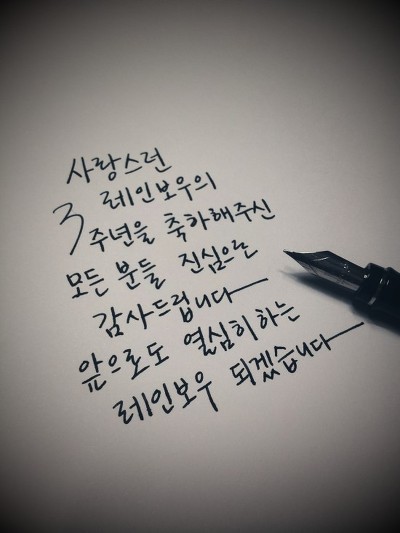 사랑스런
레인보우의
3주년을 축하해주신
모든 분들 진심으로
감사드립니다
앞으로도 열심히하는
레인보우 되겠습니다